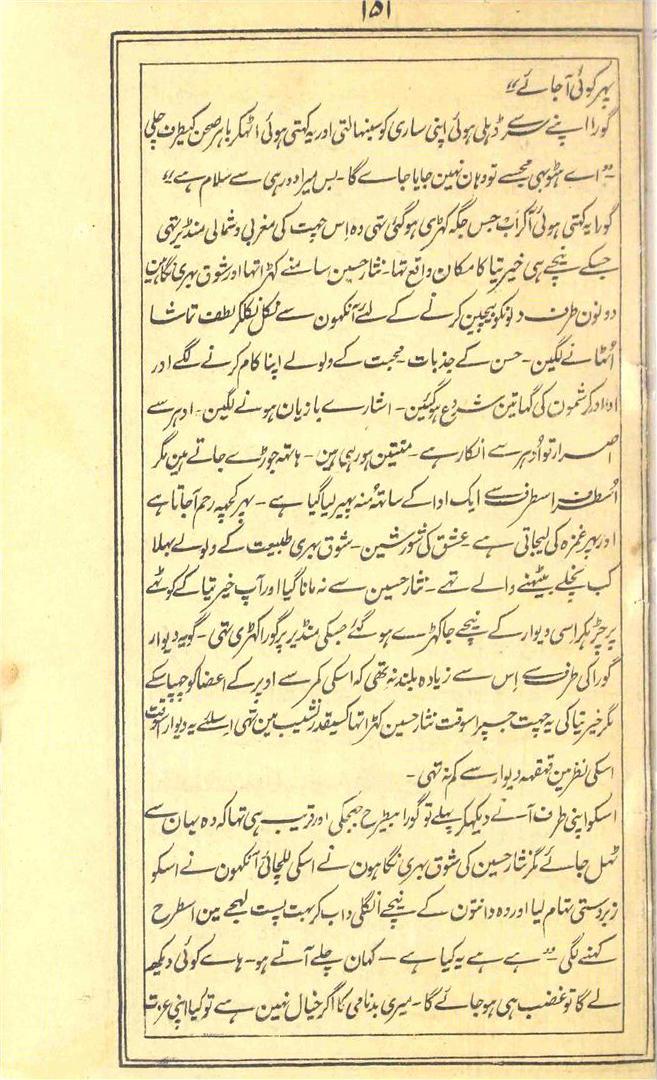 ۱۵۱
پہر کوئی آجائے"
گورا اپنے سر سے ڈہلی ہوئی اپنی ساری کو سنبہالتی اور یہ کہتی ہوئی اٹہکر باہر صحن کیطرف چلی
"اے ہٹو بہی مجہسے تو وہان نہین جایا جاے گا۔ بس میرا دور ہی سے سلام ہے"
گورا یہ کہتی ہوئی آکر اب جس جگہ کہڑی ہو گئی تہی وہ اس چہت کی مغربی و شمالی منڈیر تہی
جسکے نیچے ہی خیر تیا کا مکان واقع تہا۔ نثار حسین سامنے کہڑا تہا اور شوق بہری نگاہین
دونون طرف دلونکو بیچین کرنے کے لئے آنکہون سے نکل نکلکر لطف تماشا
اُٹہانے لگین۔ حسن کے جذبات۔ محبت کے ولولے اپنا کام کرنے لگے اور
ادا اور کرشمون کی گہاتین شروع ہو گئین۔ اشارے بازیان ہونے لگین۔ ادہر سے
اصرار تو اُدہر سے انکار ہے۔ منتین ہو رہی ہین۔ ہاتہہ جوڑے جاتے ہین مگر
اُسطرف اسطرف سے ایک ادا کے ساتہہ مُنہ پہیر لیا گیا ہے۔ پہر کچہہ رحم آجاتا ہے
اور پہر غمزہ کی لیجاتی ہے۔ عشق کی شورشین۔ شوق بہری طبیعت کے ولولے بہلا
کب نچلے بیٹہنے والے تہے۔ نثار حسین سے نہ مانا گیا اور آپ خیر تیا کے کوٹہے
پر چڑہکر اسی دیوار کے نیچے جا کہڑے ہو گئے جسکی منڈیر پر گورا کہڑی تہی۔ گو یہ دیوار
گورا کی طرف سے اس سے زیادہ بلند نہ تہی کہ اسکی کمر سے اوپر کے اعضا کو چہپا سکے
مگر خیر تیا کی یہ چہت جسپر اسوقت نثار حسین کہڑا تہا کسیقدر نشیب مین تہی اسلئے یہ دیوار اسوقت
اسکی نظر مین قہقہہ دیوار سے کم نہ تہی۔
اسکو اپنی طرف آتے دیکہکر پہلے تو گورا بیطرح جہجکی اور قریب ہی تہا کہ وہ یہان سے
ٹہل جائے مگر نثار حسین کی شوق بہری نگاہون نے اسکی للچائی آنکہون نے اسکو
زبردستی تہام لیا اور وہ دانتون کے نیچے انگلی داب کر بہت پست لہجے مین اسطرح
کہنے لگی۔ "ہے ہے یہ کیا ہے۔ کہان چلے آتے ہو۔ ہاے کوئی دیکہہ
لے گا تو غضب ہی ہو جائے گا۔ میری بدنامی کا اگر خیال نہین ہے تو کیا اپنی عزت